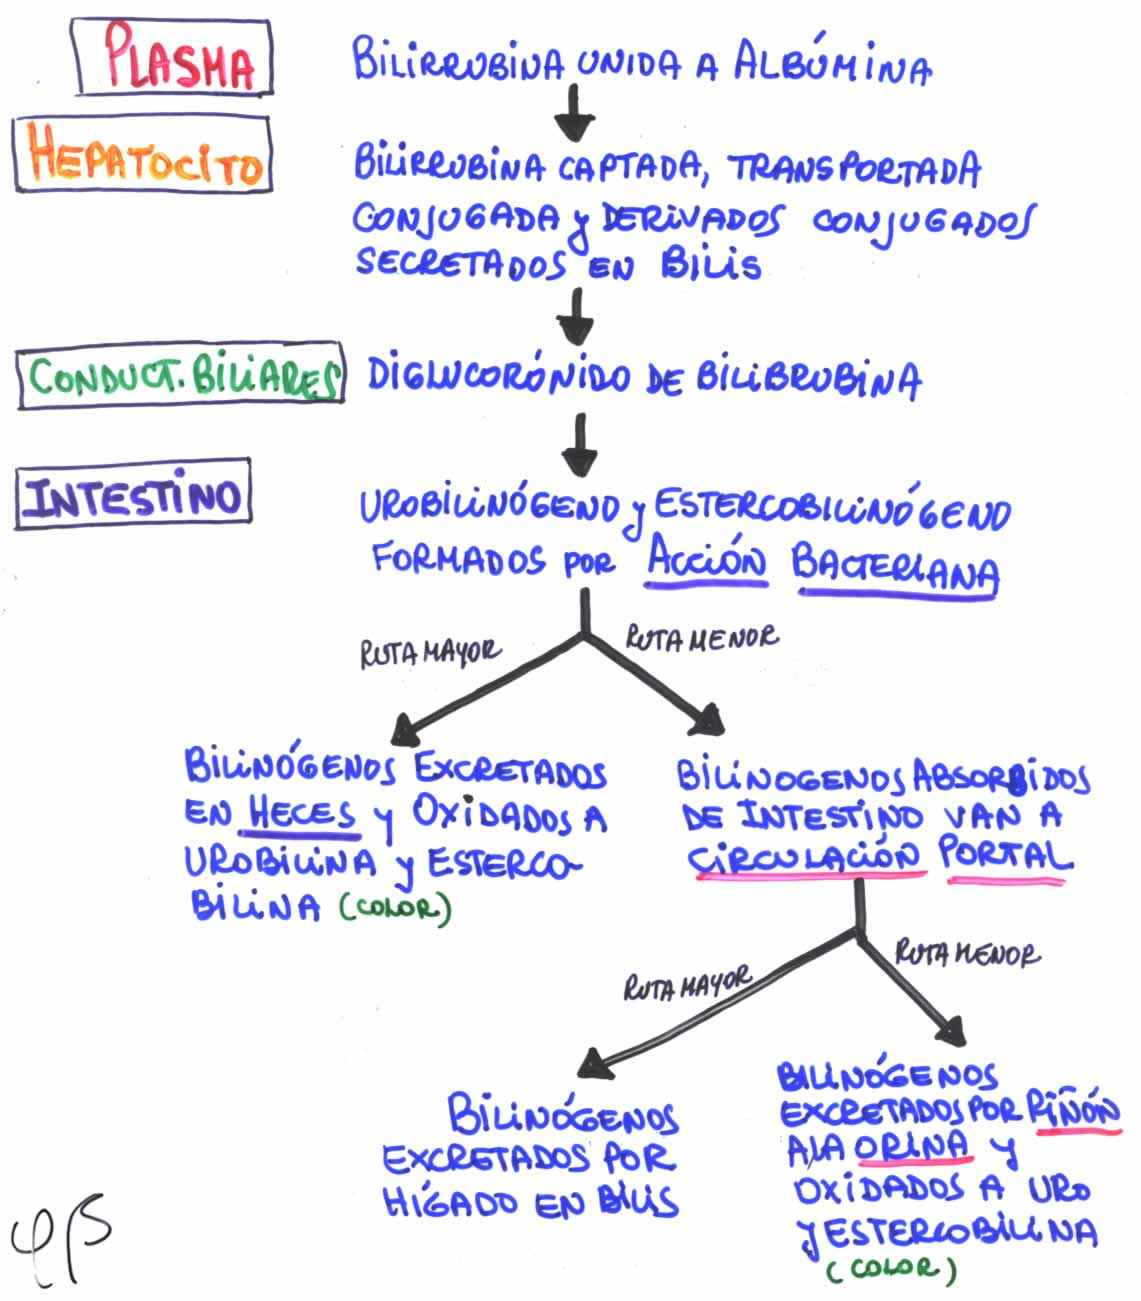 PLASMA
BILIRRUBINA UNIDA A ALBÚMINA
HEPATOCITO
BILIRRUBINA CAPTADA, TRANSPORTADA
CONJUGADA y DERIVADOS CONJUGADOS
SECRETADOS EN BILIS
CONDUCT. BILIARES
DIGLUCORÓNIDO DE BILIBRUBINA
INTESTINO
UROBILINÓGENO y ESTERCOBILINÓGENO
FORMADOS POR ACCIÓN BACTERIANA
RUTA MAYOR
RUTA MENOR
BILINÓGENOS EXCRETADOS
EN HECES y OXIDADOS A
UROBILINA y ESTERCO-
BILINA (COLOR)
BILINOGENOS ABSORBIDOS
DE INTESTINO VAN A
CIRCULACIÓN PORTAL
RUTA MAYOR
RUTA MENOR
BILINÓGENOS
EXCRETADOS POR
HÍGADO EN BILIS
BILINÓGENOS
EXCRETADOS POR RIÑÓN
A LA ORINA y
OXIDADOS A URO
y ESTERCOBILINA
(COLOR)